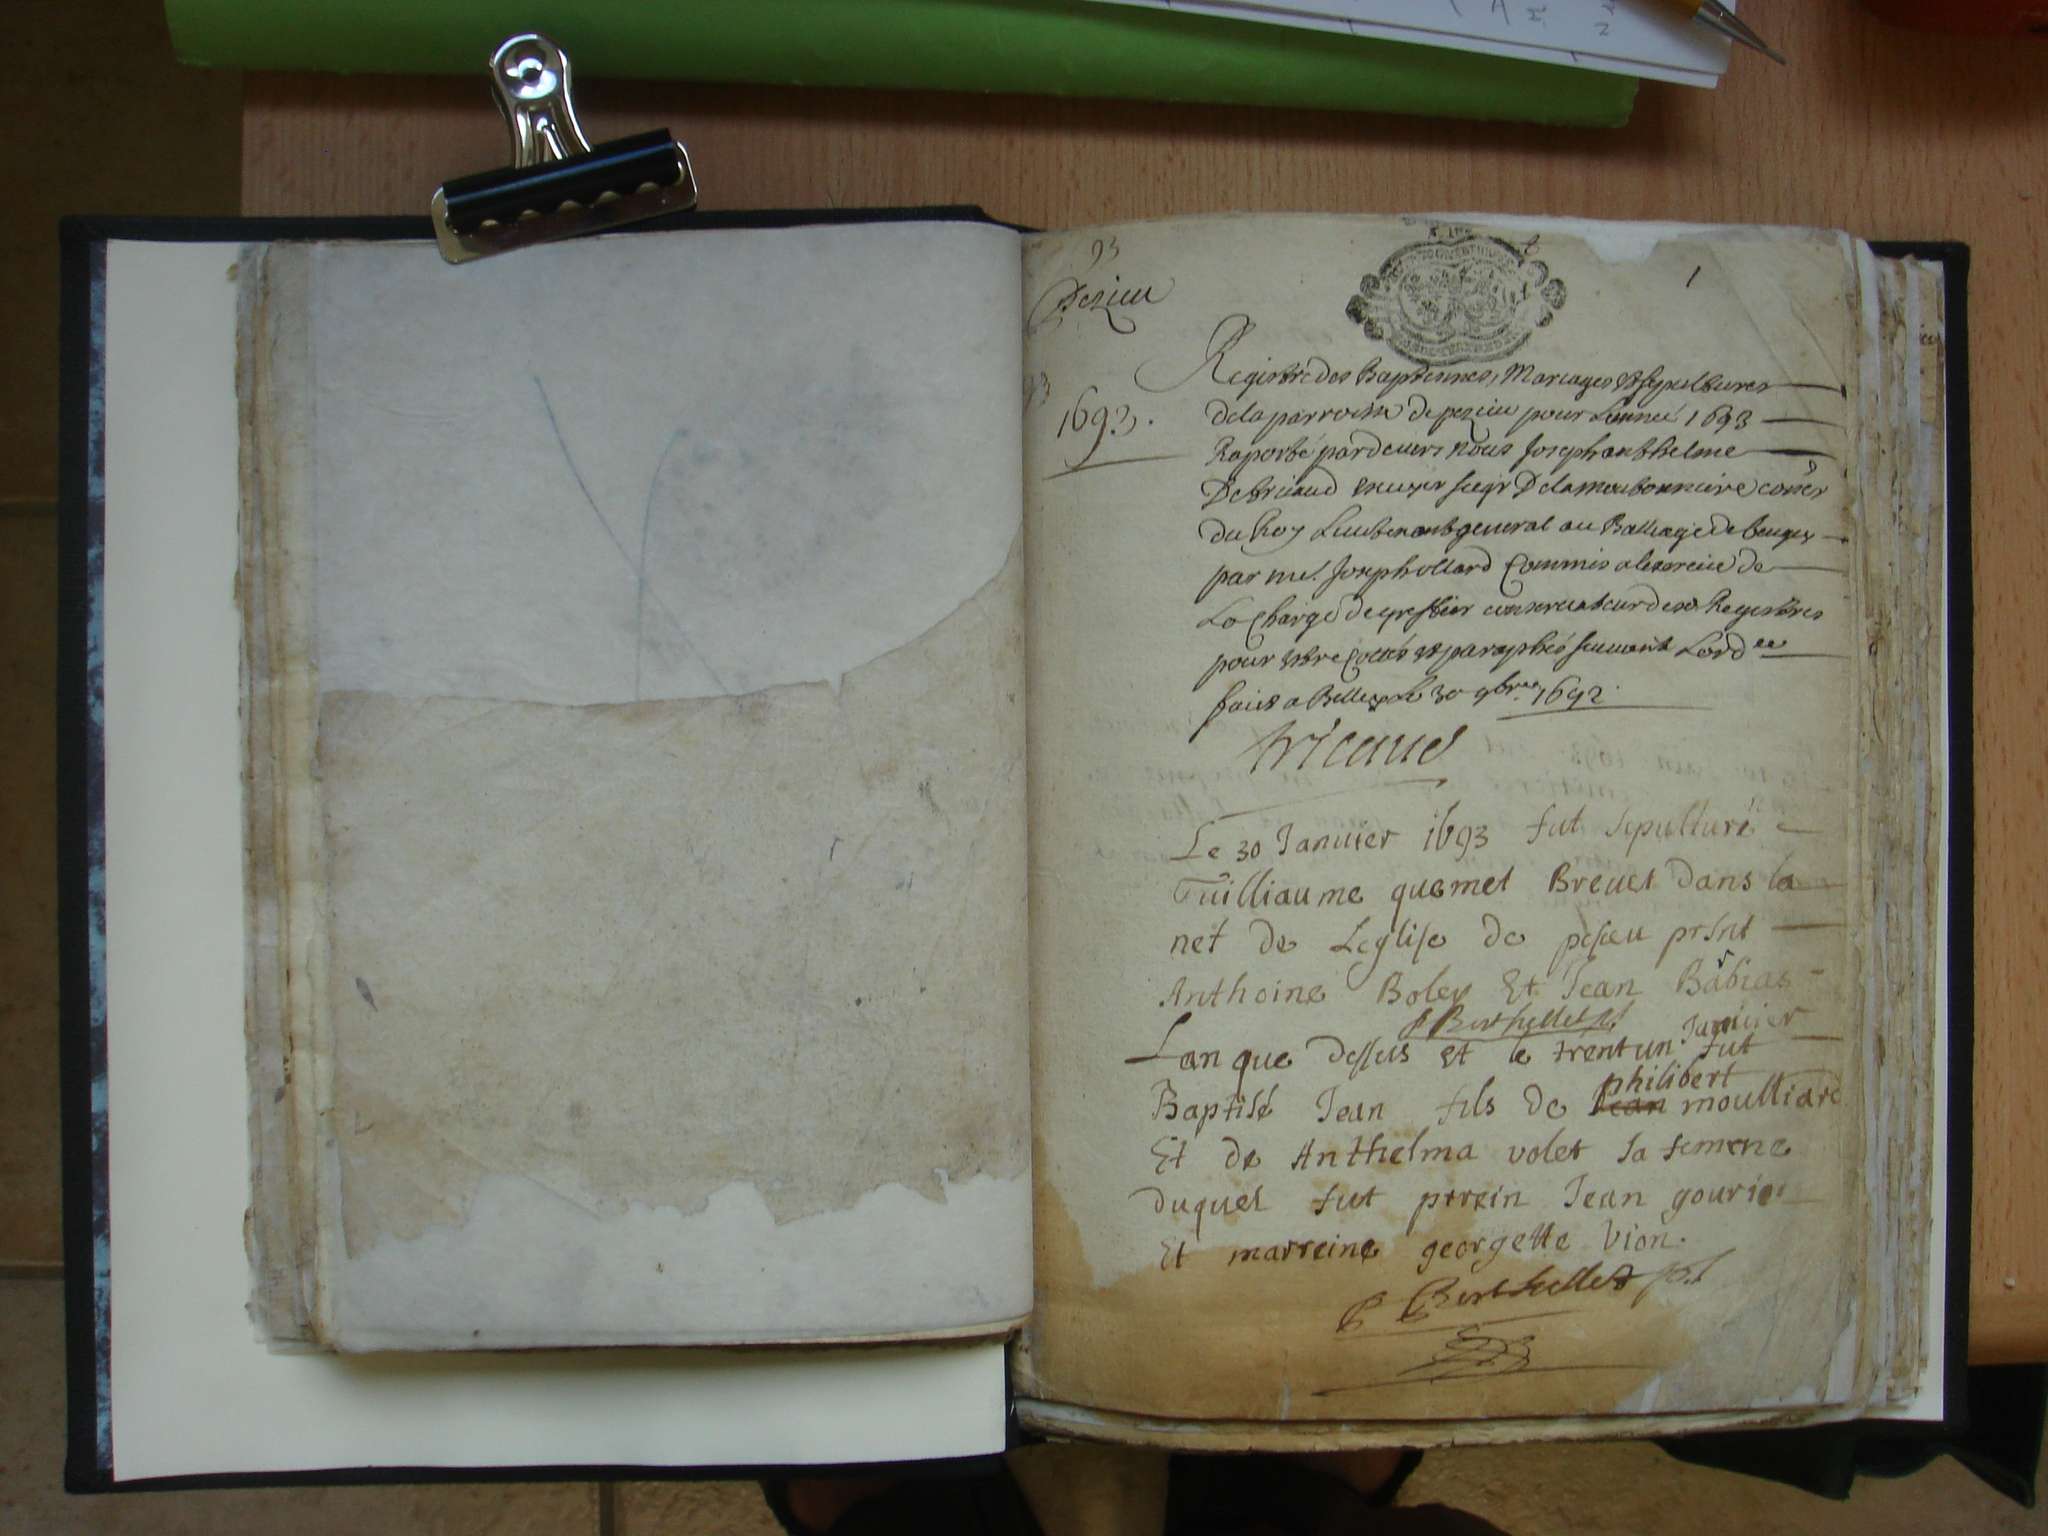 93
Pezieu
1
1693.
Registre des Baptesmes, Mariages et sepultures
de la parroisse de pezieu pour Lannee 1693
Raporté pardevers nous Joseph anthelme
De tricaud escuyer sieur De la moutonniere conser
du Roy Lieutenant general au Balliage de beugey
par me. Joseph ollard Commis a lexercice de
La Charge de greffier conservateur desd. Registres
pour estre Cottés et paraphés suivant Lord ce
faict a Belley Le 30 9bre 1692.
tricaud
Le 30 Januier 1693 fut sepulturé
Guilliaume quemet Breuet dans la
nef de Leglise de peseu prsnt
Anthoine Boley Et Jean Barbias
P Berthellet
Lan que dessus et le trentun Januier fut
Baptisé Jean fils de philibert moulliard
Et de Anthelma volet sa femene
duquel fut prrein Jean gourie
Et marreine georgette Vion.
P Berthellet